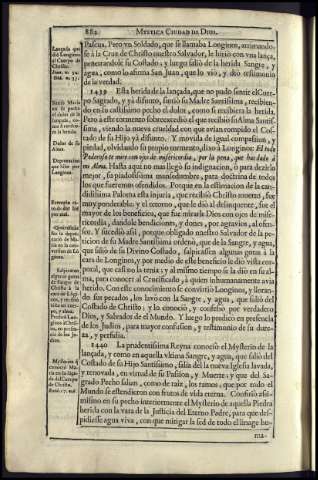 882. MYSTICA CIUDAD DE DIOS.
Pascua. Pero vn Soldado, que se llamaba Longinos, arrimando-
se à la Cruz de Christo nuestro Salvador, le hirió con vna lança,
penetrandole su Costado, y luego salió de la herida Sangre, y
agua, como lo afirma San Juan, que lo viò, y diò testimonio
de la verdad.
1439 Esta herida de la lançada, que no pudo sentir el Cuer-
po Sagrado, y yà difunto, sintiò su Madre Santissima, recibien-
do en su castissimo pecho el dolor, como si recibiera la herida.
Pero à este tormento sobreexcediò el que recibiò su Alma Santis-
sima, viendo la nueva crueldad con que avian rompido el Cos-
tado de su Hijo yà difunto. Y movida de igual compassion, y
piedad, olvidando su proprio tormento, dixo à Longinos: El todo
Poderoso te mire con ojos de misericordia, por la pena, que has dado à
mi Alma. Hasta aqui no mas llegò su indignacion, ò para dezirlo
mejor, su piadosissima mansedumbre, para doctrina de todos
los que fueremos ofendidos. Porque en la estimacion de la can-
didissima Paloma esta injuria, que recibiò Christo muerto, fue
muy ponderable; y el retorno, que le diò al delinquente, fue el
mayor de los beneficios, que fue mirarle Dios con ojos de mise-
ricordia, dandole bendiciones, y dones, por agravios, al ofen-
sor. Y sucediò assi, porque obligado nuestro Salvador de la pe-
ticion de su Madre Santissima ordenò, que de la Sangre, y agua,
que saliò de su Divino Costado, salpicassen algunas gotas à la
cara de Longinos, y por medio de este beneficio le diò vista cor-
poral, que casi no la tenia; y al mismo tiempo se la diò en su al-
ma, para conocer al Crucificado, à quien inhumanamente avia
herido. Con este conocimiento se convirtiò Longinos, y lloran-
do sus pecados, los lavò con la Sangre, y agua, que saliò del
Costado de Christo; y lo conociò, y confesò por verdadero
Dios, y Salvador de el Mundo. Y luego lo predicò en presencia
de los Judios, para mayor confusion, y testimonio de su dure-
za, y perfidia.
1440 La prudentissima Reyna conociò el Mysterio de la
lançada, y como en aquella vltima Sangre, y agua, que saliò del
Costado de su Hijo Santissimo, salia del la nueva Iglesia lavada,
y renovada, en virtud de su Passion, y Muerte: y que del Sa-
grado Pecho salian, como de raiz, los ramos, que por todo el
Mundo se estendieron con frutos de vida eterna. Confiriò assi-
mismo en su pecho interiormente el Mysterio de aquella Piedra
herida con la vara de la Justicia del Eterno Padre, para que des-
pidiesse agua viva, con que mitigar la sed de todo el linage hu-
ma-
Lançada que
diò Longinos
al Cuerpo
de Christo.
Dolor de su
Alma.